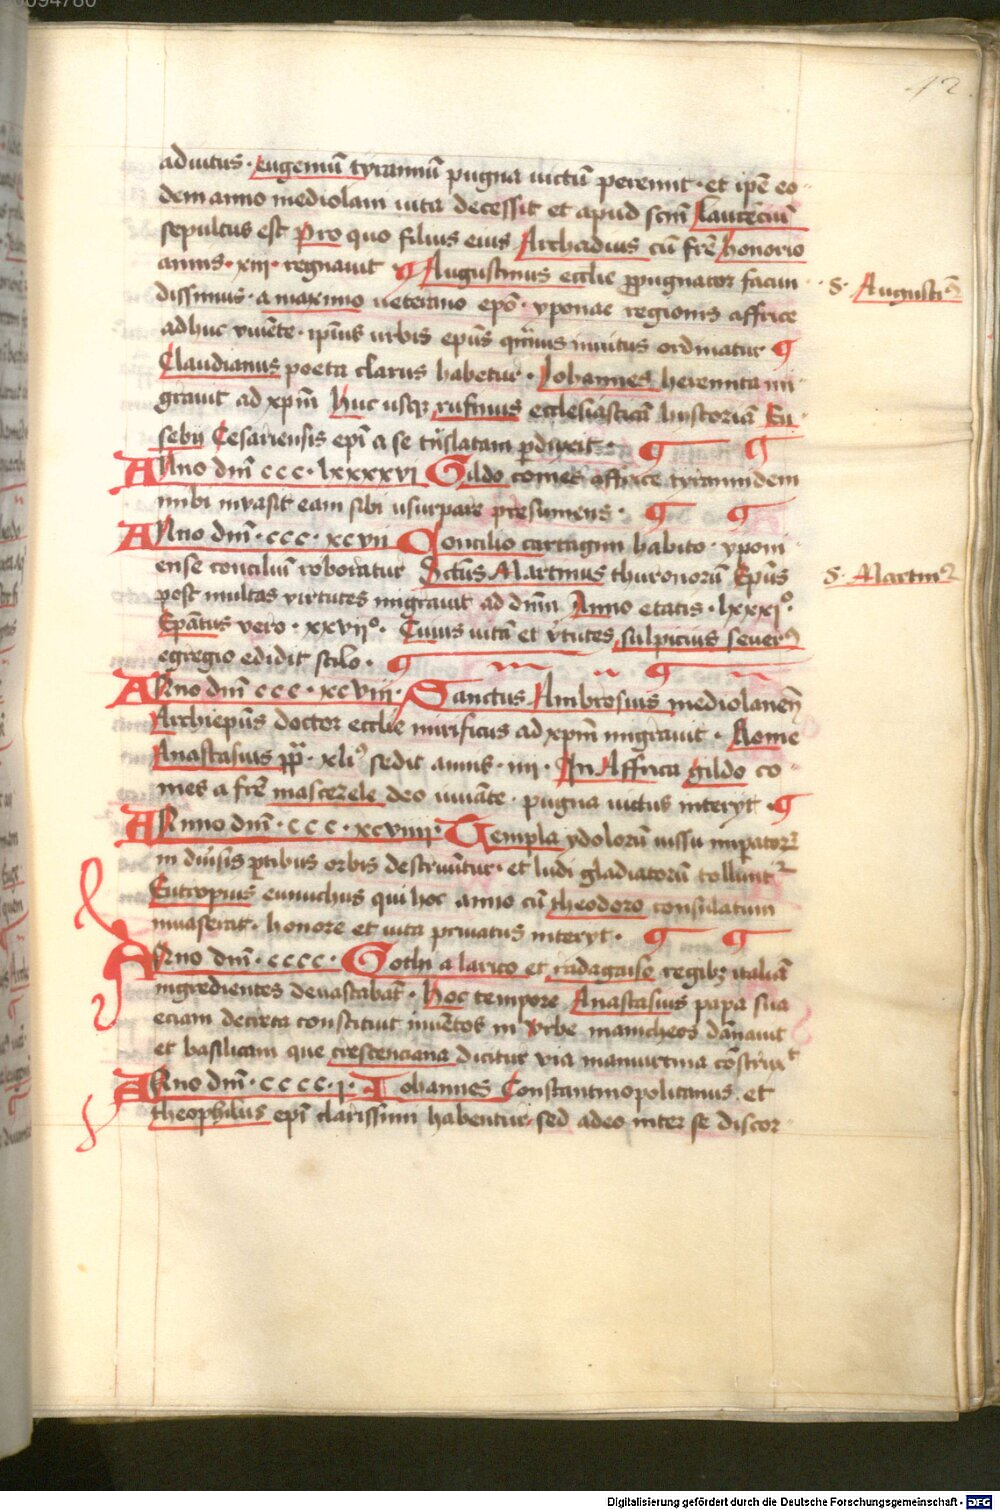 00094780
42
aduitus · eugeniū tyrannū pugna uictū peremit · et ipē eo
dem anno mediolani uita decessit et apud scm̄ Laurēciū
sepultus est Pro quo filius eius Archadius cū fr̄e honorio
annis · xiij · regnauit ¶ Augustinus eccl̄ie p̱pugnator facun
S · Augusti9
dissimus · a maximo ueterano ep̄o · yponae regionis affrice
adhuc viuēte · ip̄ius urbis ep̄us inuitus ordinatur ¶
Claudianus poeta clarus habetur · Iohannes heremita mi
grauit ad xp̄m Huc usqꝫ rufinus ecclesiasticā historiā Eu
sebij Cesariensis ep̄i a se trāslatam ꝑduxit · ¶ ¶
ANno dnī ccc · lxxxxvi Gildo comes affrice tyrannidem
inibi invasit eam sibi usurpare presumens · ¶ ¶
ANno dnī · ccc · xcvii Concilio cartaginī habito · yponi
ense conciliū roboratur Sctūs Martinus thuronorū Ep̄us
S · Martin9
post multas virtutes migrauit ad dnm̄ Anno etatis · lxxxjº ·
Ep̄atus vero · xxvijº · Cuius uitā et v̄tutes sulpicius seuer9
egregio edidit stilo · ¶ ¶
ANno dnī ccc · xcviii · Sanctus Ambrosius mediolanen̄
Archiep̄us doctor eccl̄ie mirificus ad xp̄m migrauit · Rome
Anastasius pp̄a · xli9 sedit annis · iiij · In Affrica gildo co
mes a fr̄e mascezele deo viuāte · pugna uictus interyt · ¶
ANno dnī · ccc · xcviiij · Templa ydolorū iussu impatorꝝ
in diūsis ꝑtibus orbis destruūtur · et ludi gladiatorū tollūnt
Eutropius eunuchus qui hoc anno cū theodoro consulatum
inuaserat · honore et uita priuatus interyt · ¶ ¶
ANno dnī · cccc · Gothi alarico et radagaiso regibꝫ italiā
ingredientes deuastabāt · Hoc tempore Anastasius papa sua
eciam decreta constituit inuētos in vrbe manicheos dānauit
et basilicam que crescenciana dicitur via manurtina cōstrux̄t
ANno dnī · cccc · j · Iohannes Constantinopolitanus et
theophilus ep̄i clarissimi habentur sed adeo inter se discor
Digitalisierung gefördert durch die Deutsche Forschungsgemeinschaft · DFG